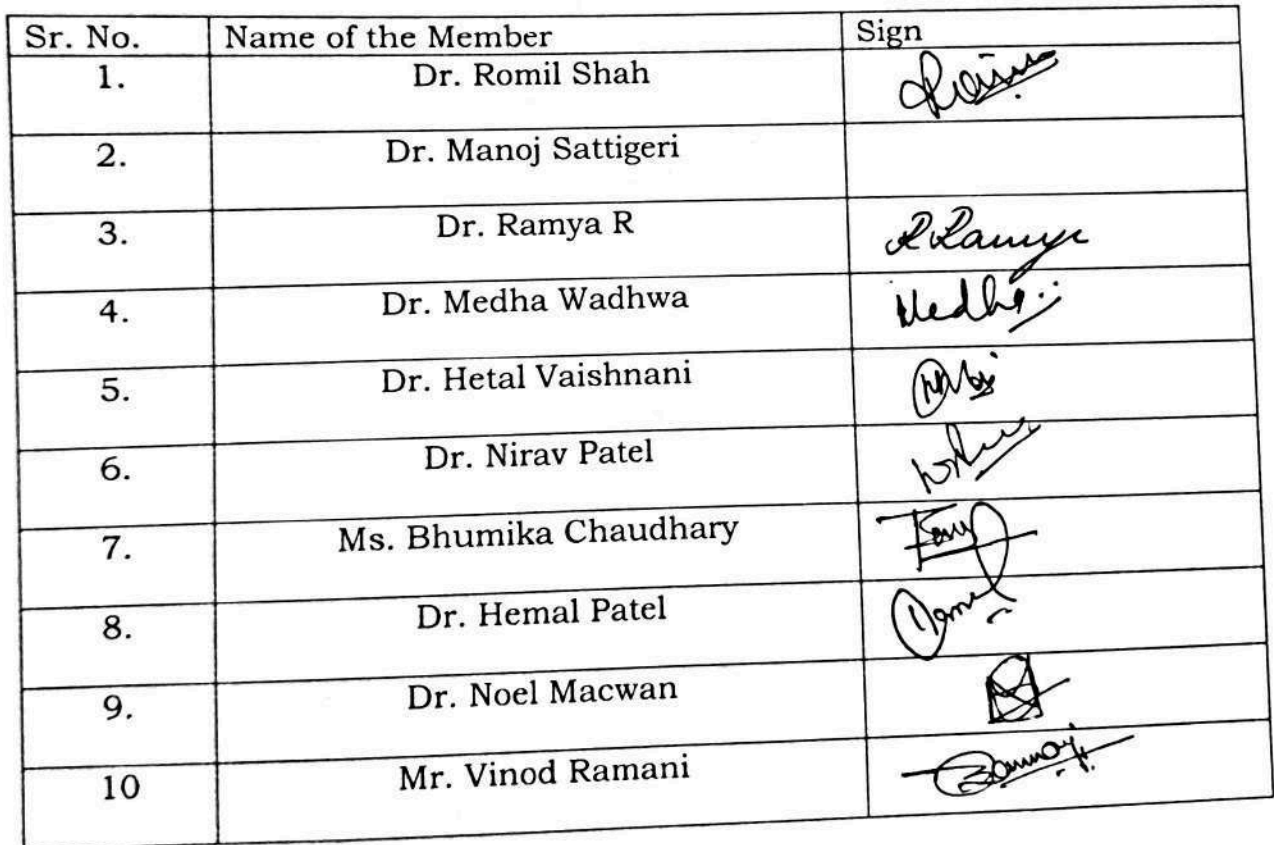 Sr. No. Name of the Member Sign
1. Dr. Romil Shah
2. Dr. Manoj Sattigeri
3. Dr. Ramya R R Ramya
4. Dr. Medha Wadhwa Medha
5. Dr. Hetal Vaishnani
6. Dr. Nirav Patel
7. Ms. Bhumika Chaudhary
8. Dr. Hemal Patel
9. Dr. Noel Macwan
10 Mr. Vinod Ramani